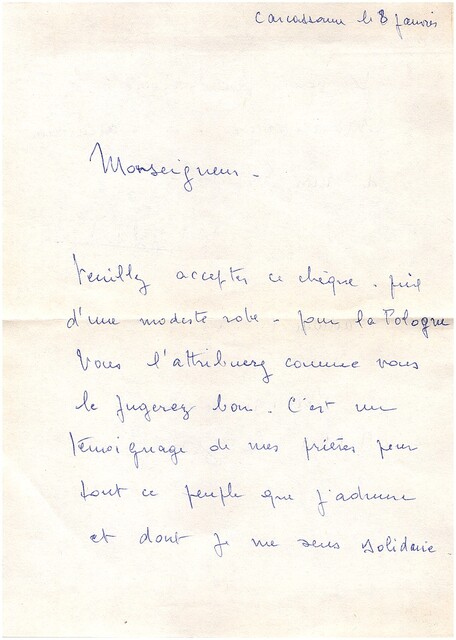 Carcassonne le 8 janvier
Monseigneur -
Veuillez accepter ce chèque - prix
d'une modeste robe - pour la Pologne
Vous l'attribuerez comme vous
le jugerez bon. C'est un
témoignage de mes prières pour
tout ce peuple que j'admire
et dont je me sens solidaire.